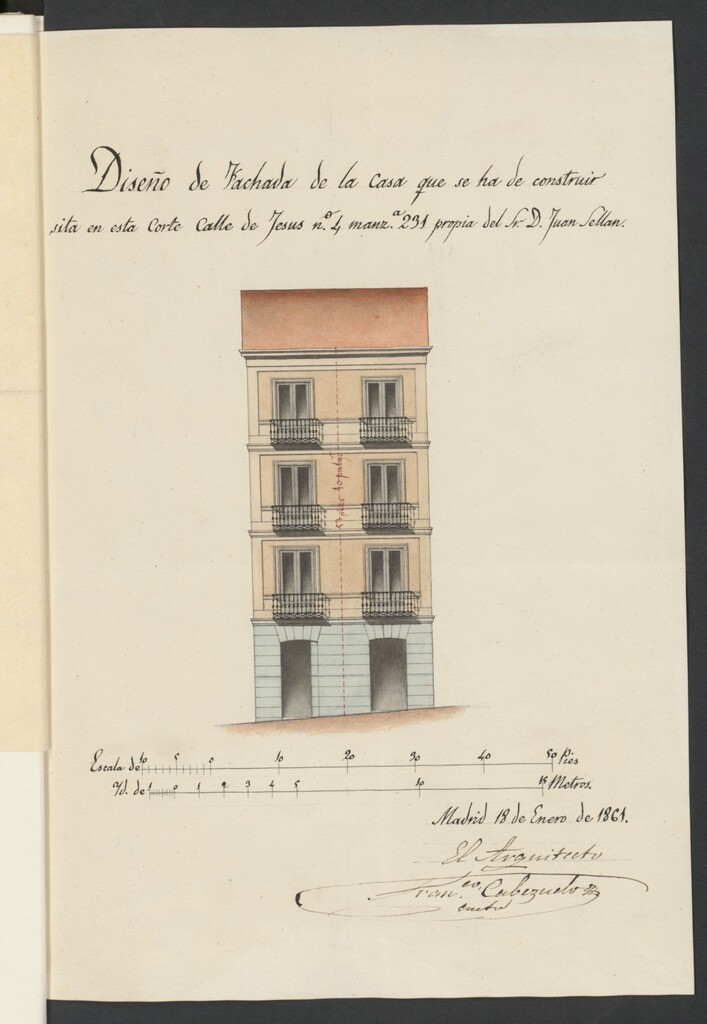 Diseño de Fachada de la Casa que se ha de construir
sita en esta Corte Calle de Jesus n.º 4 manz.ª 231 propia del Sr. D. Juan Sellan.
53 pies 40 pulg.
Escala de 10 5 0 10 20 30 40 50 Pies
Yd. de 1 0 1 2 3 4 5 10 15 Metros.
Madrid 18 de Enero de 1861.
El Arquitecto
Fran.co Cabezuelo